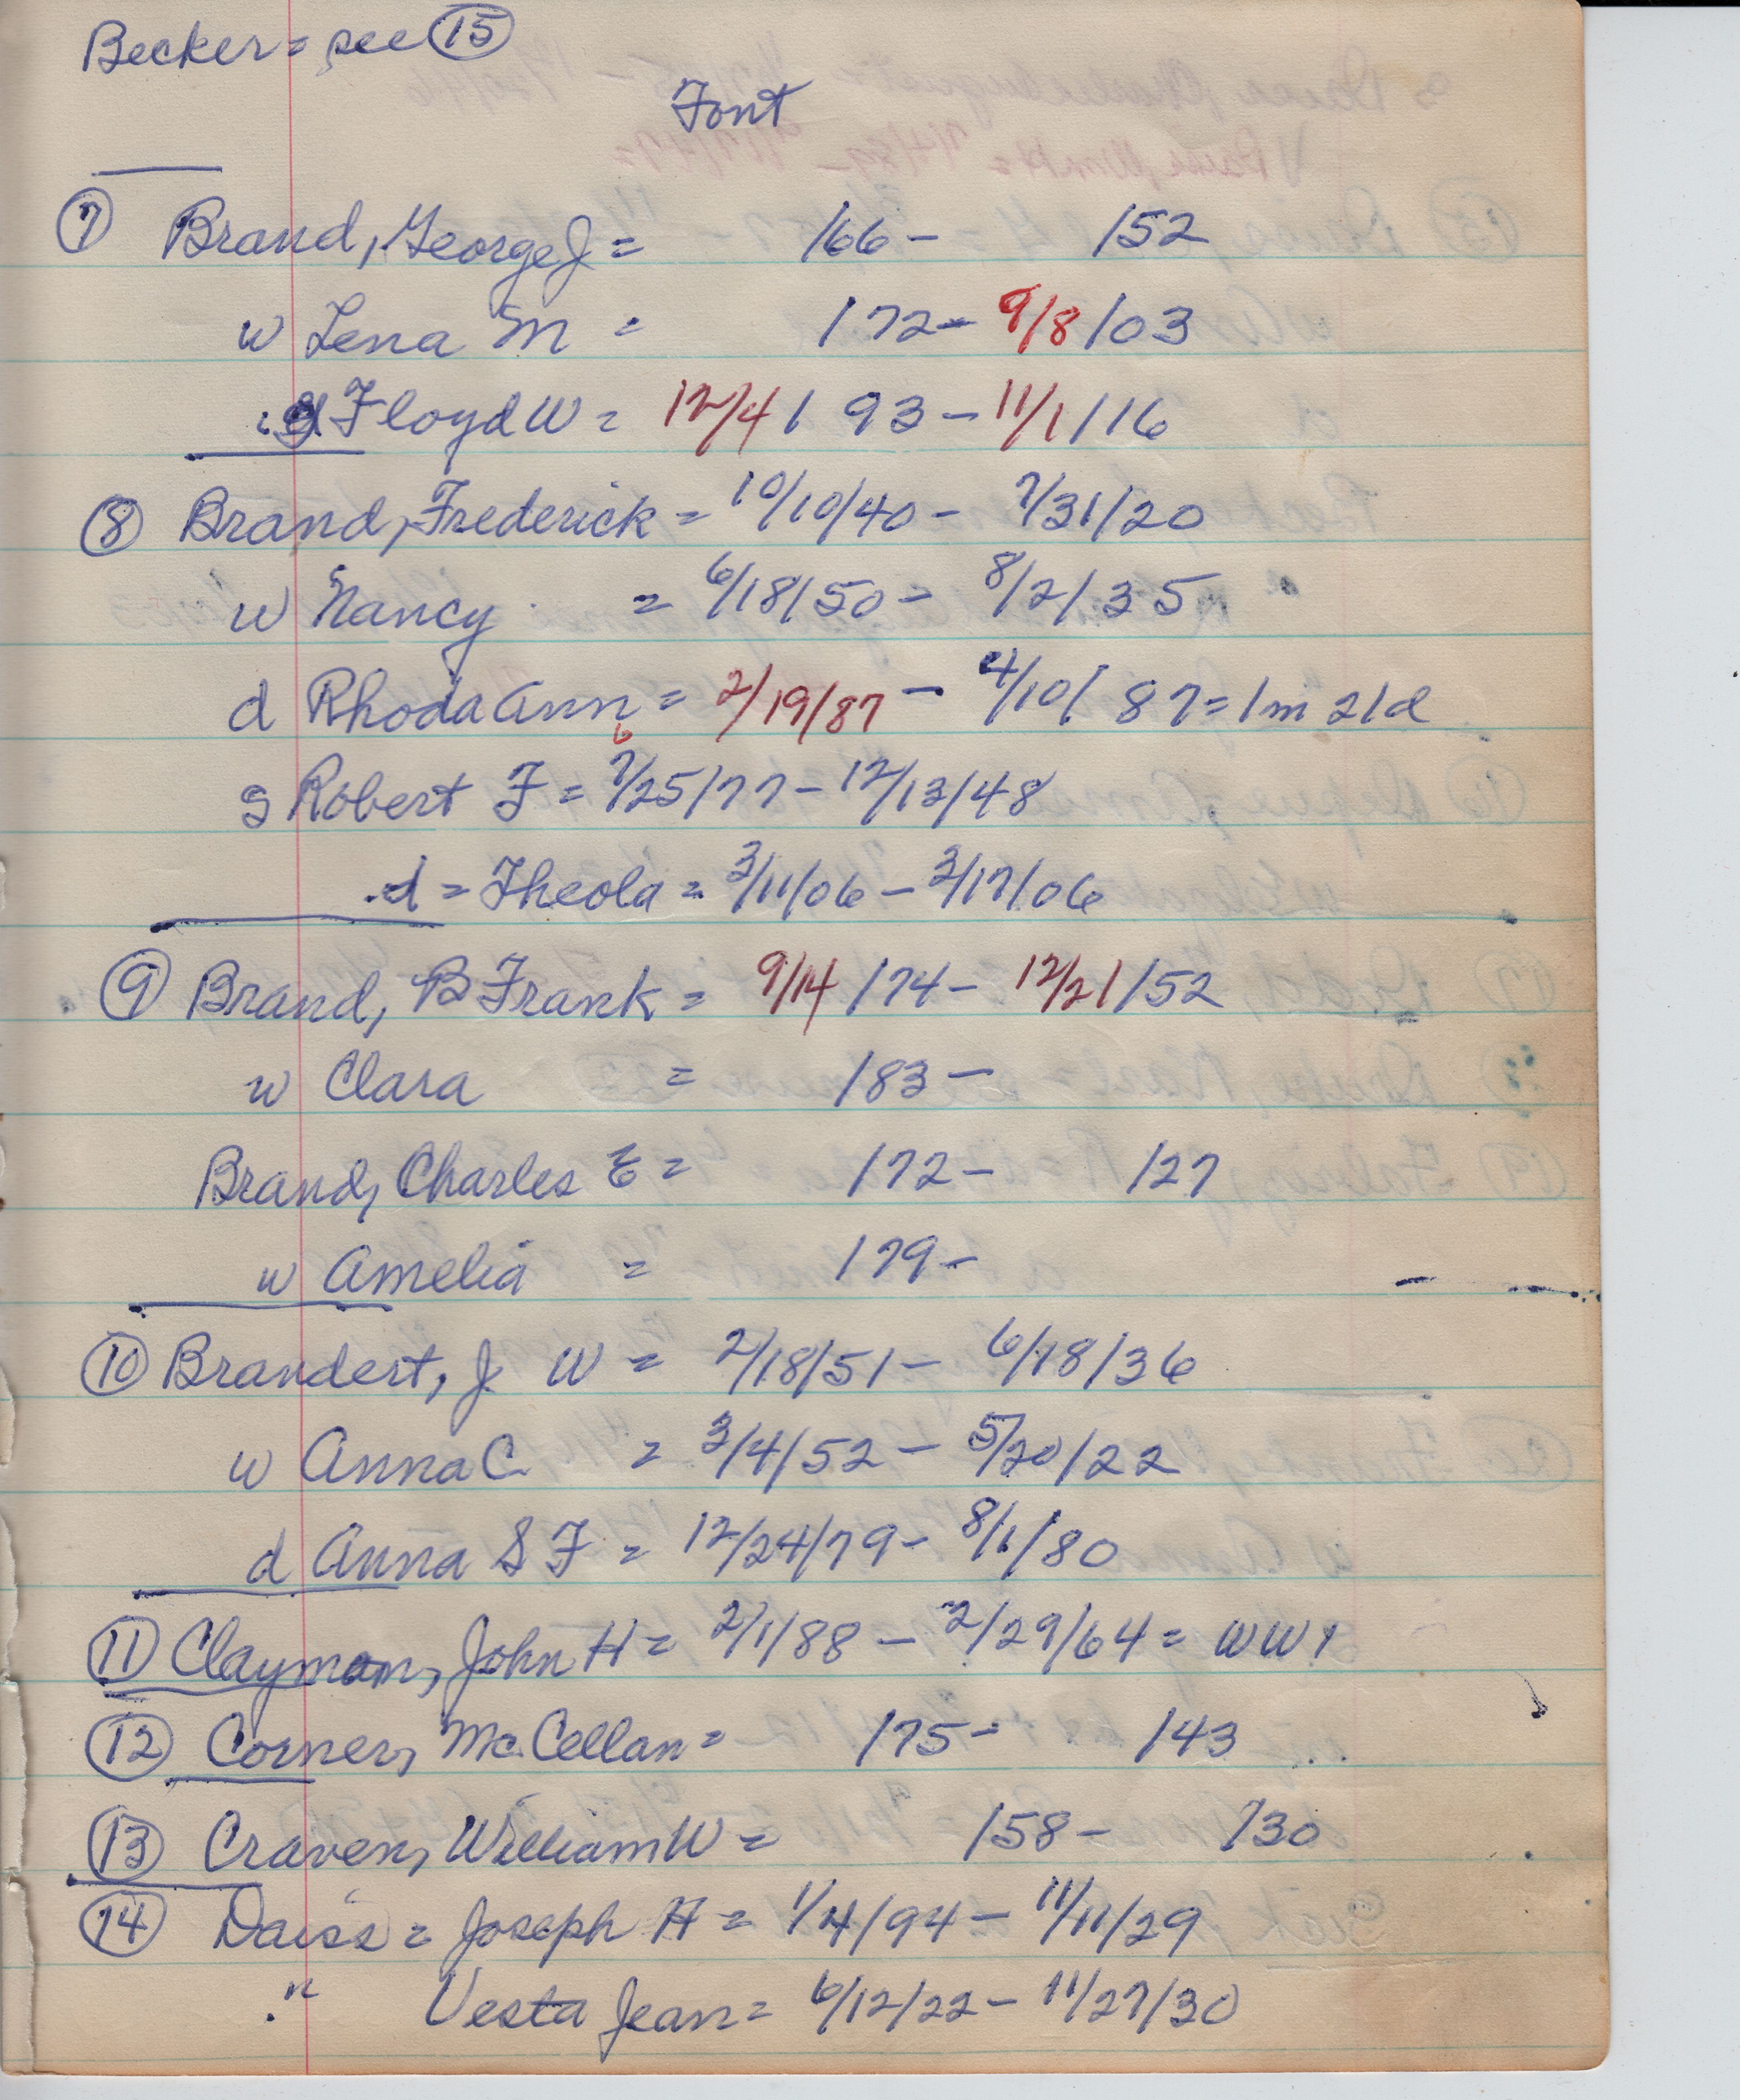 Becker = see 15
Font
7 Brand, George J = /66 - /52
w Lena M = /72 - 9/8/03
s Floyd W = 12/4/93 - 11/1/16
8 Brand, Frederick = 10/10/40 - 7/31/20
w Nancy = 6/18/50 - 8/2/35
d Rhoda Ann = 2/19/87 - 4/10/87 = 1m 21d
6
s Robert F = 7/25/77 - 12/13/48
d = Theola = 3/11/06 - 3/17/06
9 Brand, B Frank = 9/14/74 - 12/21/52
w Clara = /83 -
Brand, Charles E = /72 - /27
w Amelia = /79 -
10 Brandert, J W = 2/18/51 - 6/18/36
w Anna C = 3/4/52 - 5/20/22
d Anna S F = 12/24/79 - 8/1/80
11 Clayman, John H = 2/1/88 - 2/29/64 = WW1
12 Corner, McCellan = /75 - /43
13 Craven, William W = /58 - /30
14 Daiss = Joseph H = 1/4/94 - 11/11/29
" Vesta Jean = 6/12/22 - 11/27/30